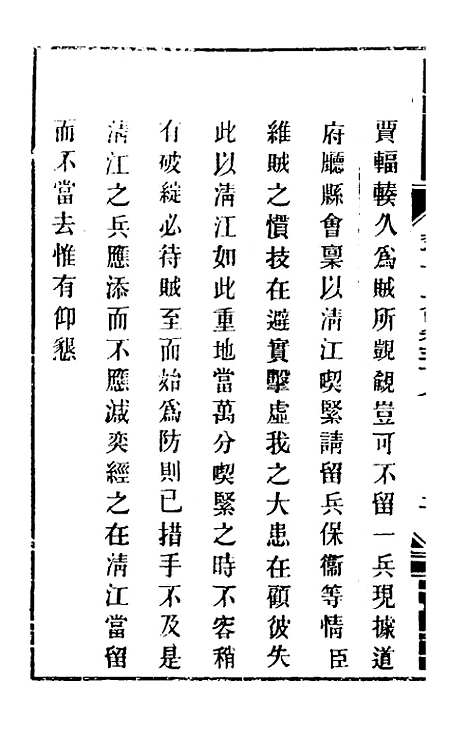 賈輻輳久爲賊所覬覦豈可不留一兵現據道
府廳縣會稟以淸江喫緊請留兵保衞等情臣
維賊之慣技在避實擊虛我之大患在顧彼失
此以淸江如此重地當萬分喫緊之時不容稍
有破綻必待賊至而始爲防則已措手不及是
淸江之兵應添而不應減奕經之在淸江當留
而不當去惟有仰懇